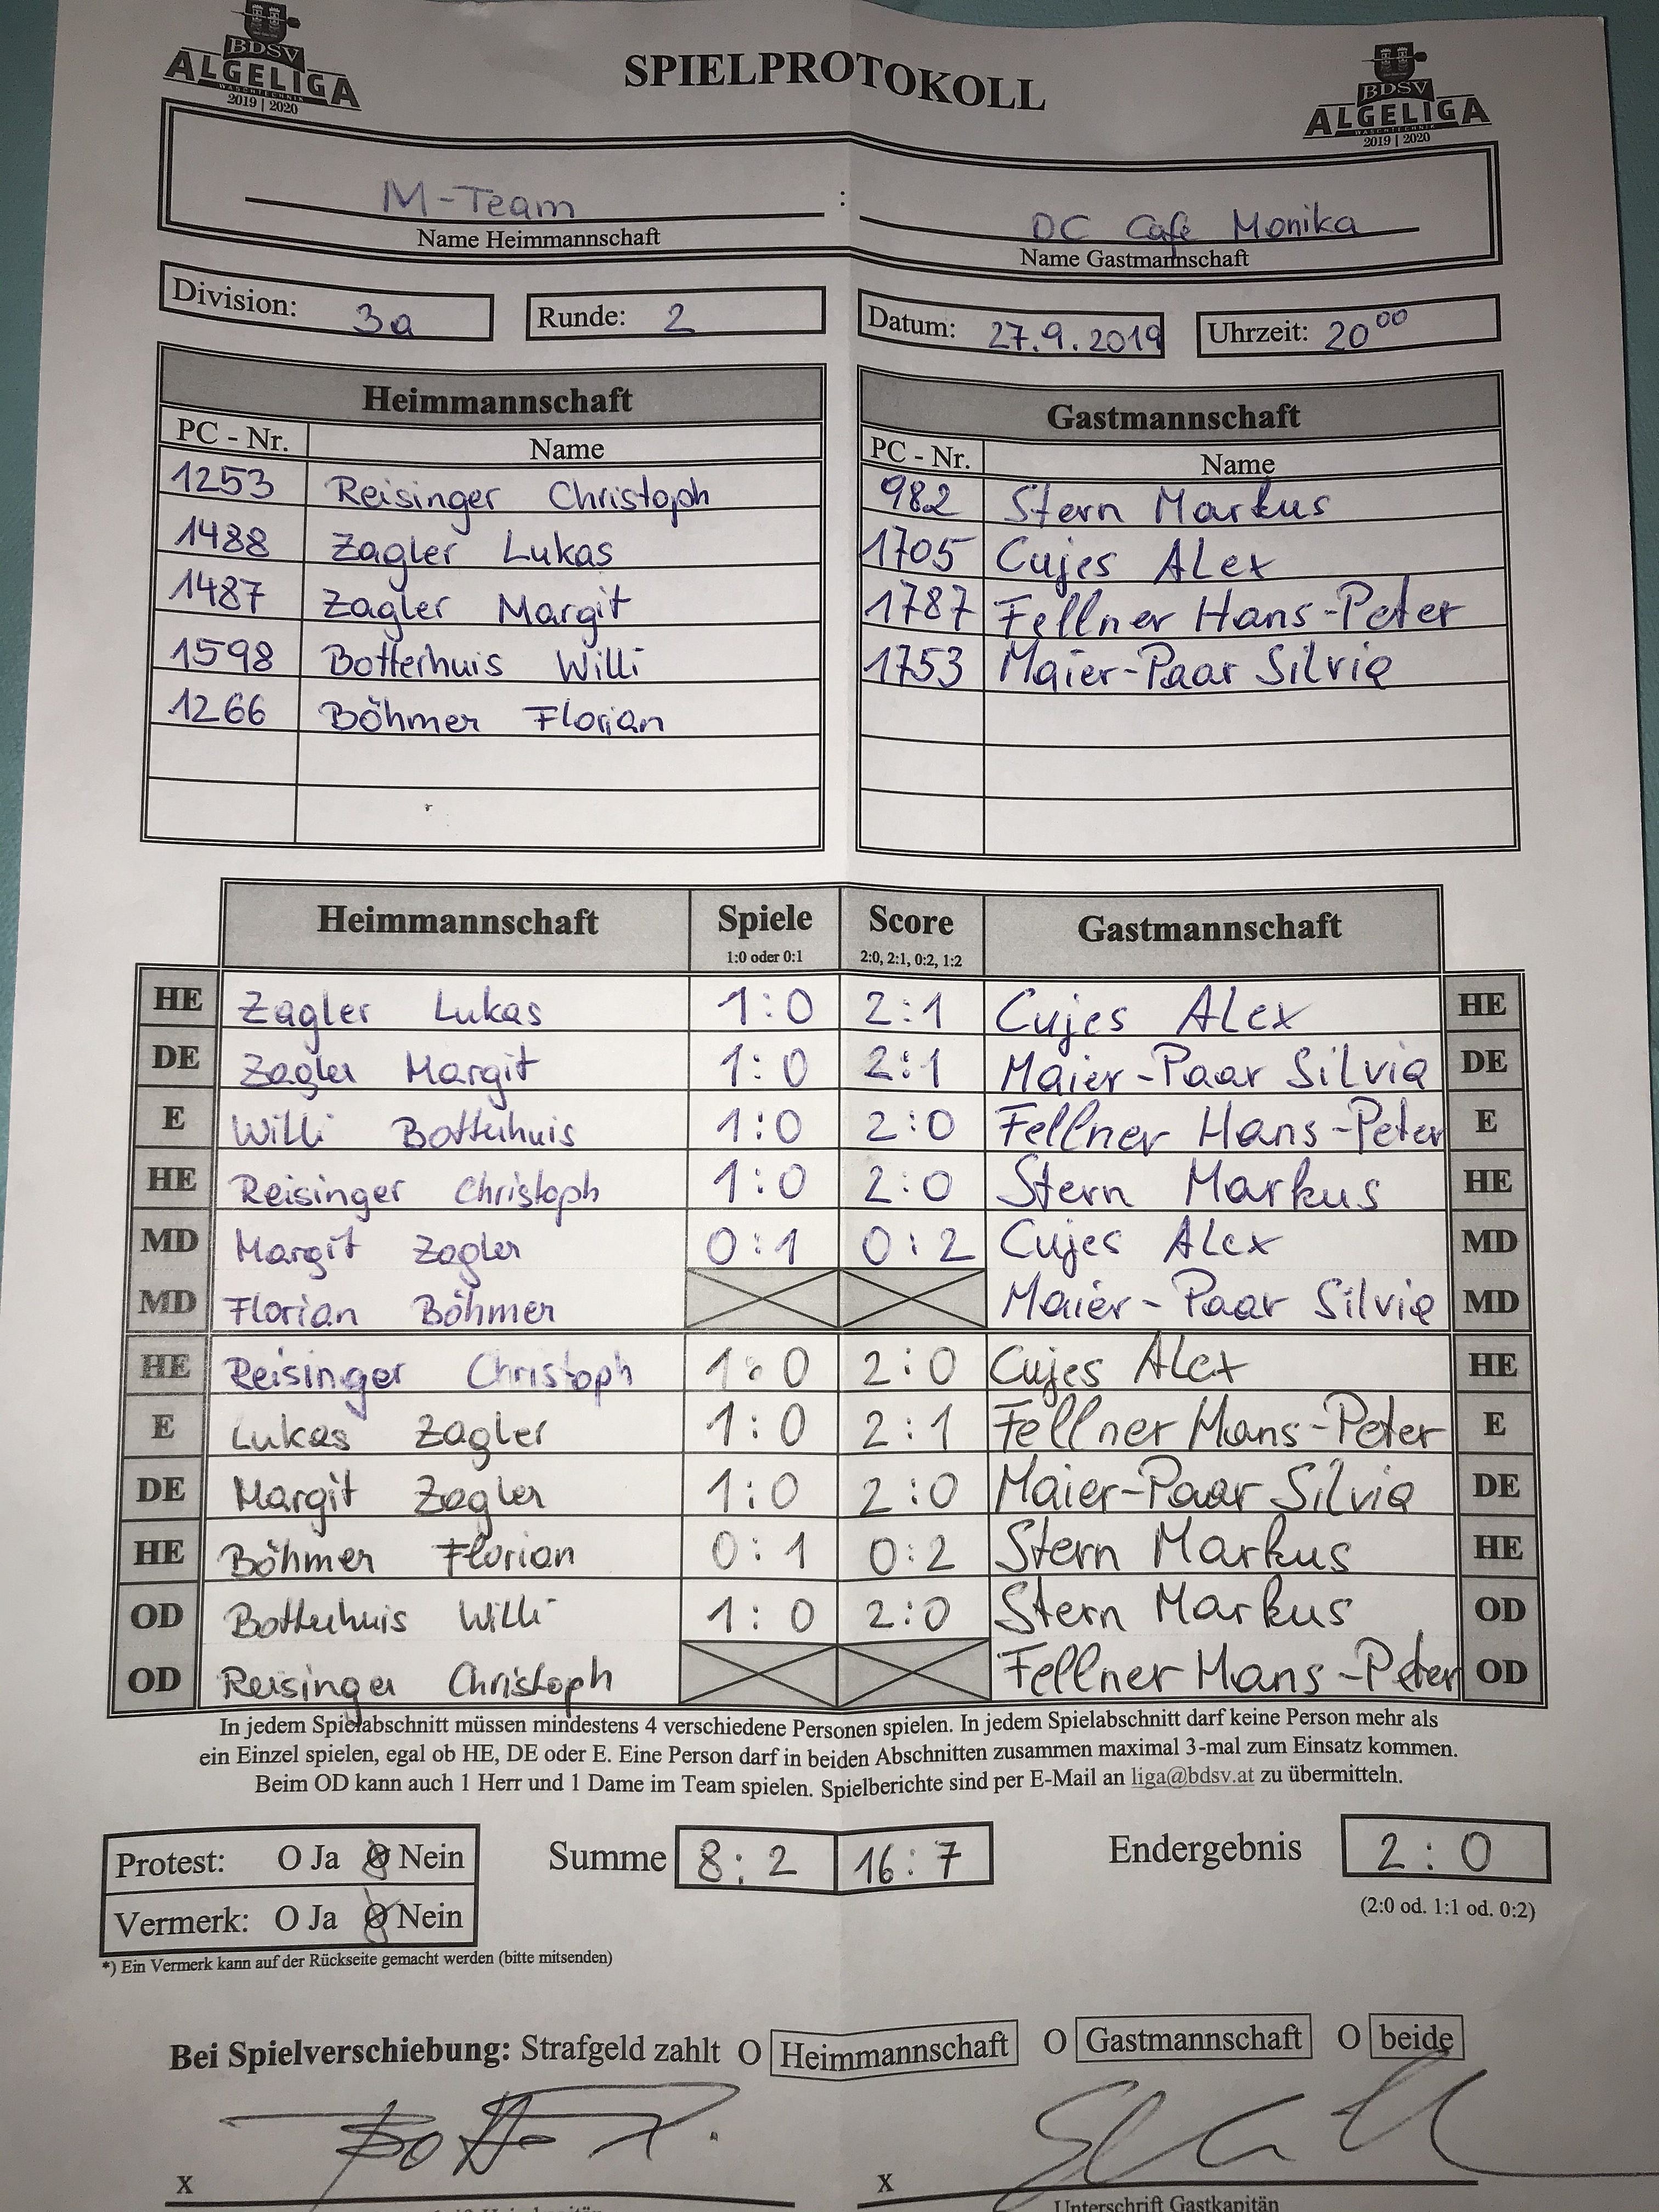 BDSV BDSV
ALGELIGA SPIELPROTOKOLL ALGELIGA
WASCHTECHNIK WASCHTECHNIK
2019 | 2020 2019 | 2020
M-Team : DC Café Monika
Name Heimmannschaft Name Gastmannschaft
Division: 3a Runde: 2 Datum: 27.9.2019 Uhrzeit: 20⁰⁰
Heimmannschaft Gastmannschaft
PC - Nr. Name PC - Nr. Name
1253 Reisinger Christoph 982 Stern Markus
1488 Zagler Lukas 1705 Cujes Alex
1487 Zagler Margit 1787 Fellner Hans-Peter
1598 Botterhuis Willi 1753 Maier-Paar Silvia
1266 Böhmer Florian
Heimmannschaft Spiele Score Gastmannschaft
1:0 oder 0:1 2:0, 2:1, 0:2, 1:2
HE Zagler Lukas 1:0 2:1 Cujes Alex HE
DE Zagler Margit 1:0 2:1 Maier-Paar Silvia DE
E Willi Botterhuis 1:0 2:0 Fellner Hans-Peter E
HE Reisinger Christoph 1:0 2:0 Stern Markus HE
MD Margit Zagler 0:1 0:2 Cujes Alex MD
MD Florian Böhmer Maier-Paar Silvia MD
HE Reisinger Christoph 1:0 2:0 Cujes Alex HE
E Lukas Zagler 1:0 2:1 Fellner Hans-Peter E
DE Margit Zagler 1:0 2:0 Maier-Paar Silvia DE
HE Böhmer Florian 0:1 0:2 Stern Markus HE
OD Botterhuis Willi 1:0 2:0 Stern Markus OD
OD Reisinger Christoph Fellner Hans-Peter OD
In jedem Spielabschnitt müssen mindestens 4 verschiedene Personen spielen. In jedem Spielabschnitt darf keine Person mehr als
ein Einzel spielen, egal ob HE, DE oder E. Eine Person darf in beiden Abschnitten zusammen maximal 3-mal zum Einsatz kommen.
Beim OD kann auch 1 Herr und 1 Dame im Team spielen. Spielberichte sind per E-Mail an liga@bdsv.at zu übermitteln.
Protest: O Ja O Nein Summe 8:2 16:7 Endergebnis 2:0
Vermerk: O Ja O Nein (2:0 od. 1:1 od. 0:2)
*) Ein Vermerk kann auf der Rückseite gemacht werden (bitte mitsenden)
Bei Spielverschiebung: Strafgeld zahlt O Heimmannschaft O Gastmannschaft O beide
x x
Unterschrift Gastkapitän